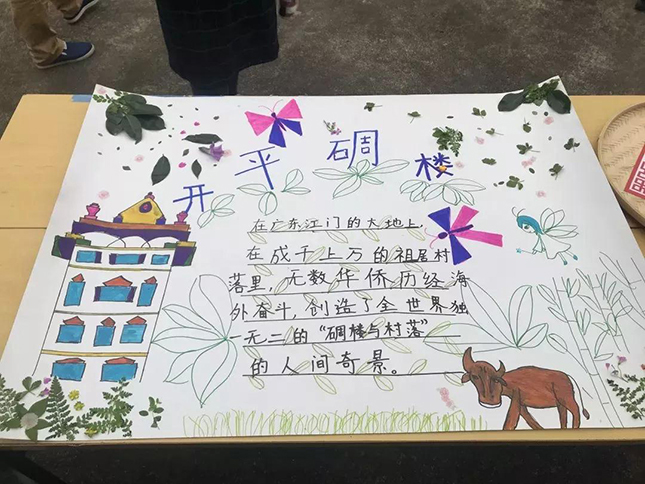 开平碉楼
在广东江门的大地上,
在成千上万的祖屋村
落里，无数华侨历经海
外奋斗，创造了全世界独
一无二的“碉楼与村落”——
的人间奇景。